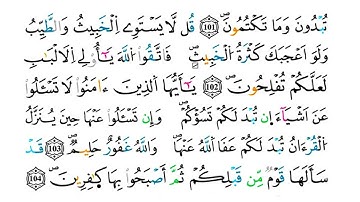 تُبْدُونَ وَمَا تَكْتُمُونَۖ ١٠١ قُل لَّا يَسْتَوِے اِ۬لْخَبِيثُ وَالطَّيِّبُ
وَلَوَ اَعْجَبَكَ كَثْرَةُ اُ۬لْخَبِيثِۖ فَاتَّقُوا۟ اُ۬للَّهَ يَٰٓأُوْلِے اِ۬لَالْبَٰبِ
لَعَلَّكُمْ تُفْلِحُونَۖ ١٠٢ يَٰٓأَيُّهَا اَ۬لذِينَ ءَامَنُوا۟ لَا تَسْـَٔلُوا۟
عَنَ اَشْيَآءَ ان تُبْدَ لَكُمْ تَسُؤْكُمْۖ وَإِن تَسْـَٔلُوا۟ عَنْهَا حِينَ يُنَزَّلُ
اُ۬لْقُرْءَانُ تُبْدَ لَكُمْ عَفَا اَ۬للَّهُ عَنْهَاۖ وَاللَّهُ غَفُورٌ حَلِيمٞۖ ١٠٣ قَدْ
سَأَلَهَا قَوْمٞ مِّن قَبْلِكُمْ ثُمَّ أَصْبَحُوا۟ بِهَا كَٰفِرِينَۖ ١٠٤